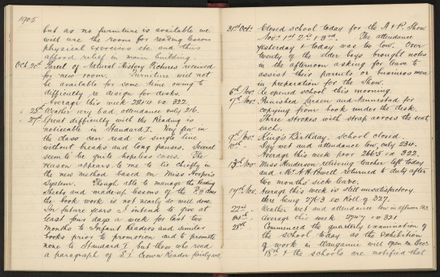 1905
but as no furniture is available we
will use the room for reading lessons
physical exercises etc and thus
afford relief in main building
Oct 24th Parcel of Natural History Pictures received
for new room. Furniture will not
be available for some time owing to
difficulty in design for desks.
Average this week 281.4 to 322
25th Weather very bad attendance only
27th Great difficulty with the Reading is
noticeable in Standard I. Very few in
the class can read a single line
without breaks and long pauses. Several
seem to be quite hopeless cases. The
reason appears to me to be chiefly in
the new method based on Miss
System. Though able to manage the Reading
Sheets and
the book work is not nearly so well done.
In future years I intend to give at
least four days a week for last two
months to Infant Readers and similar
books prior to promotion and to promote
none to Standard I but those who read
a paragraph of S.1 Crown Reader
31st Oct. Closed school today for the A & P Show
Nov. 1st 2nd & 3rd. The attendance
yesterday & today was too low. Over
twenty of the elder boys brought notes
in the afternoon asking for leave to
assist their parents or business men
in preparation for the Show.
6th Nov. Reopened school this morning.
7th Nov. Thurston Larsen and
copying from book under the desk.
Three strokes with strap across the seat
each.
9th Nov. King's Birthday. School closed.
10th " Day wet and attendance low, only 234.
Average this week for 266.5 to 322.
13th Nov. Miss Henderson relieving teacher left today
and Mr A.H. Howell returned to duty after
two months sick leave.
17th Nov. Average this week is still unsatisfactory
there being 276.3 to Roll of 327.
22nd Weather wet and attendance low in afternoon
24th Average this week 279.7 to 321
28th Commenced the quarterly examination of
the school today as the Exhibition
of work in Wanganui will open on Dec
13th & the schools are notified that